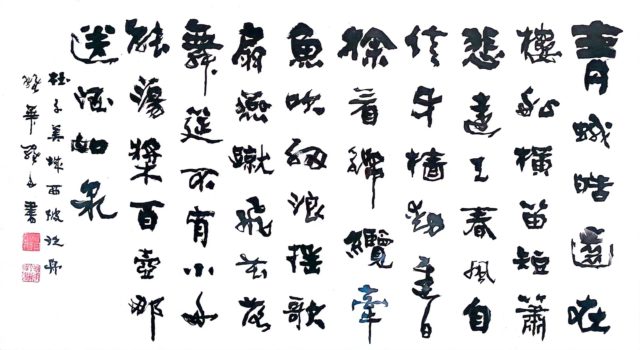 青蛾皓齒在
樓船橫笛短簫
悲遠天春風自
信牙檣動遲日
徐看錦纜牽
魚吹細浪搖歌
扇燕蹴飛花落
舞筵不有小舟
能蕩槳百壺那
送酒如泉
杜子美城西陂泛舟
華書